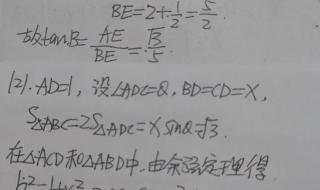 BE=2+1/2=5/2.
故tanB=AE/BE=√3/5.
(2).AD=1,设∠ADC=θ,BD=CD=x,
S△ABC=2S△ADC=xsinθ=√3.
在△ACD和△ABD中.由余弦定理得